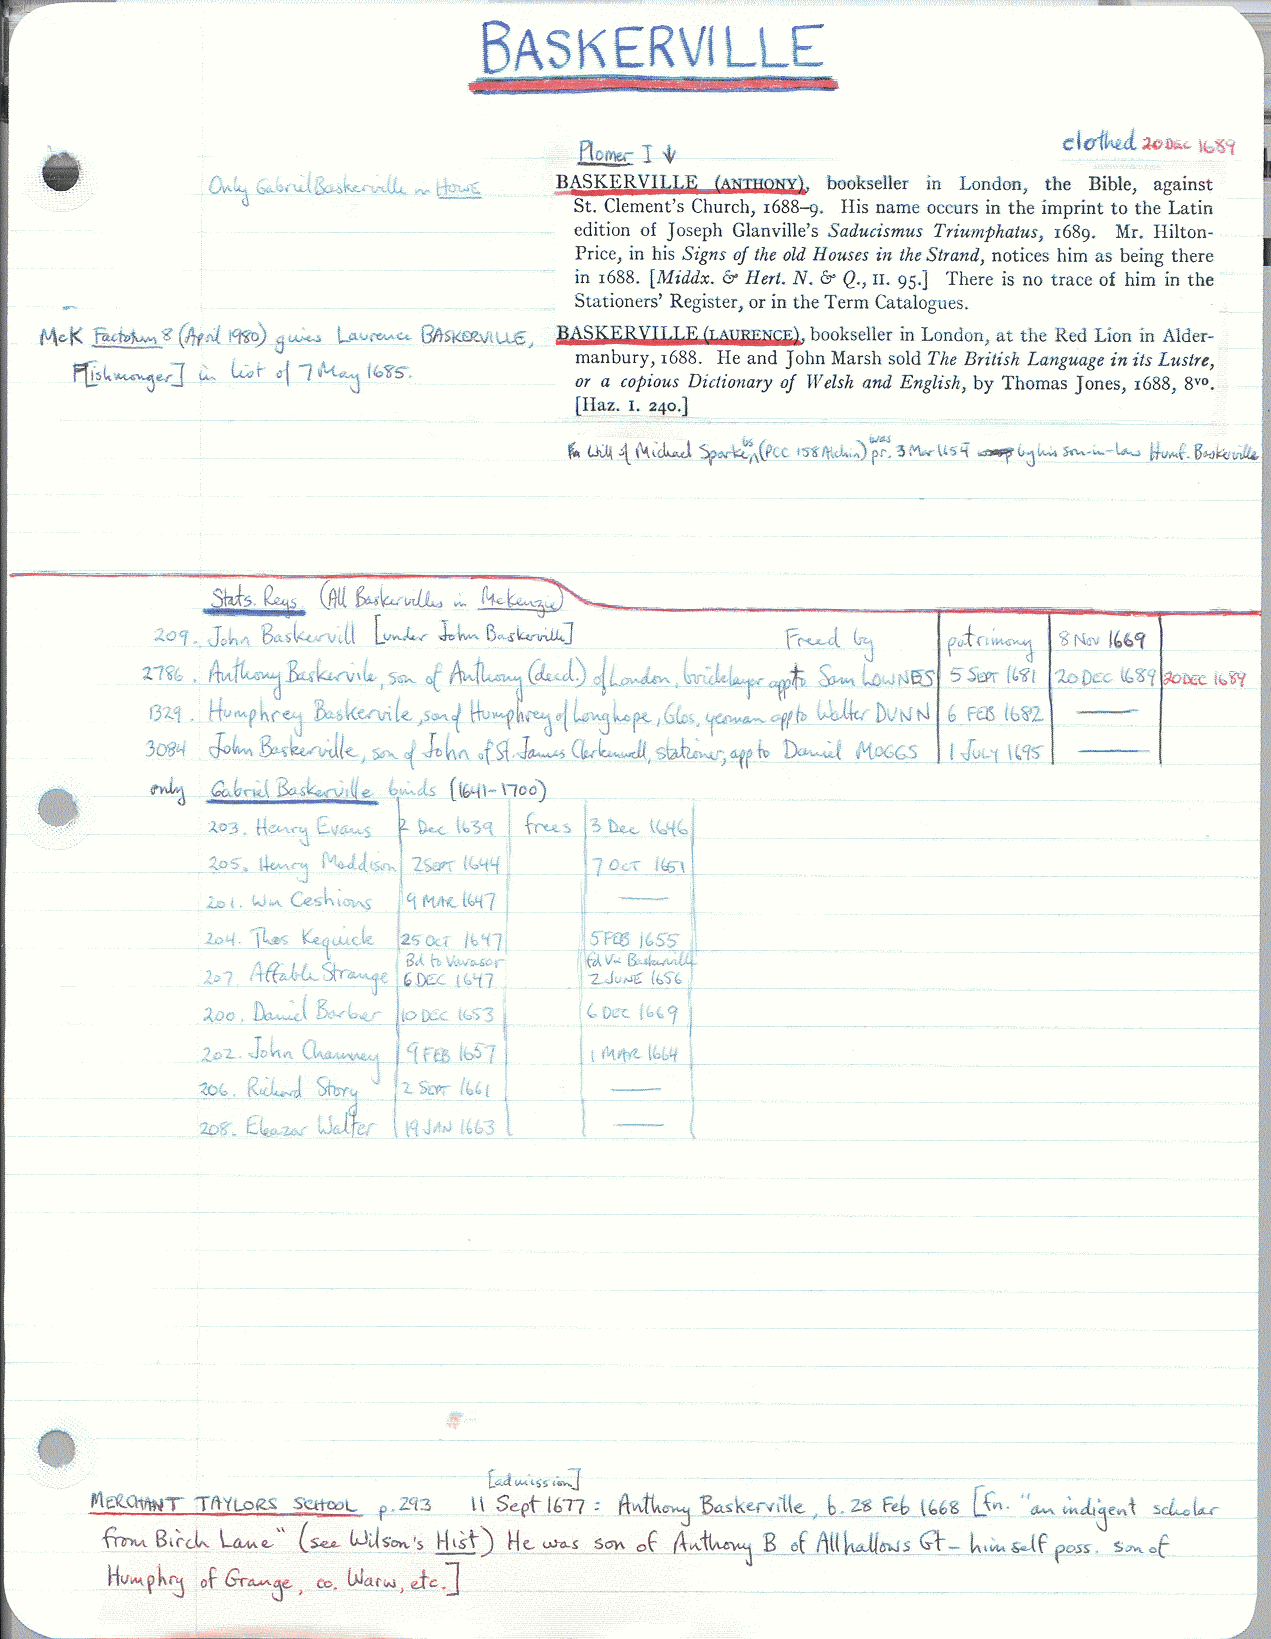 BASKERVILLE
clothed 20 DEC 1689
Plomer I ↓
Only Gabriel Baskerville in Howe
BASKERVILLE (ANTHONY), bookseller in London, the Bible, against
St. Clement's Church, 1688–9. His name occurs in the imprint to the Latin
edition of Joseph Glanville's Saducismus Triumphatus, 1689. Mr. Hilton-
Price, in his Signs of the old Houses in the Strand, notices him as being there
in 1688. [Middx. & Hert. N. & Q., II. 95.] There is no trace of him in the
Stationers' Register, or in the Term Catalogues.
McK Factotum 8 (April 1980) gives Laurence BASKERVILLE,
F[ishmonger] in list of 7 May 1685.
BASKERVILLE (LAURENCE), bookseller in London, at the Red Lion in Alder-
manbury, 1688. He and John Marsh sold The British Language in its Lustre,
or a copious Dictionary of Welsh and English, by Thomas Jones, 1688, 8vo.
[Haz. I. 240.]
Will of Michael Sparke (PCC 158 Alchin) was pr. 3 Mar 1654 by his son-in-law Humf. Baskerville
Stats. Regs. (All Baskervilles in McKenzie)
209. John Baskervill [under John Baskerville] Freed by patrimony 8 Nov 1669
2786. Anthony Baskervile, son of Anthony (decd.) of London, bricklayer app to Sam LOWNES 5 SEPT 1681 20 DEC 1689 20 DEC 1689
1329. Humphrey Baskervile, son of Humphrey of Longhope, Glos, yeoman app to Walter DUNN 6 FEB 1682 —
3084 John Baskerville, son of John of St. James Clerkenwell, stationer, app to Daniel MOGGS 1 JULY 1695 —
only Gabriel Baskerville binds (1641–1700)
203. Henry Evans 2 Dec 1639 frees 3 Dec 1646
205. Henry Maddison 2 SEPT 1644 7 OCT 1651
201. Wm Ceshions 9 MAR 1647 —
204. Thos Kequick 25 OCT 1647 5 FEB 1655
Bd to Vavasor fd Vu Baskerville
207. Affable Strange 6 DEC 1647 2 JUNE 1656
200. Daniel Barber 10 DEC 1653 6 DEC 1669
202. John Chauncey 9 FEB 1657 1 MAR 1664
206. Richard Story 2 SEPT 1661 —
208. Eleazar Walter 19 JAN 1663 —
[admission]
MERCHANT TAYLORS SCHOOL p. 293 11 Sept 1677: Anthony Baskerville, b. 28 Feb 1668 [fn. "an indigent scholar
from Birch Lane" (see Wilson's Hist) He was son of Anthony B of Allhallows Gt – himself poss. son of
Humphry of Grange, co. Warw, etc.]